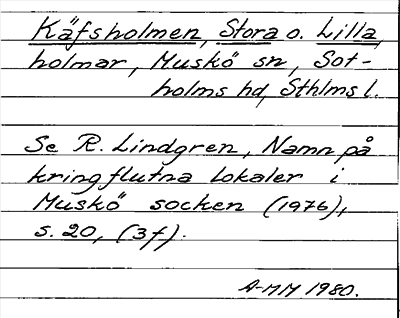 Käfsholmen, Stora o. Lilla,
holmar, Muskö sn, Sot-
holms hd, Sthlms l.
Se R. Lindgren, Namn på
kringflutna lokaler i
Muskö socken (1976),
s. 20, (3f).
A-MM 1980.